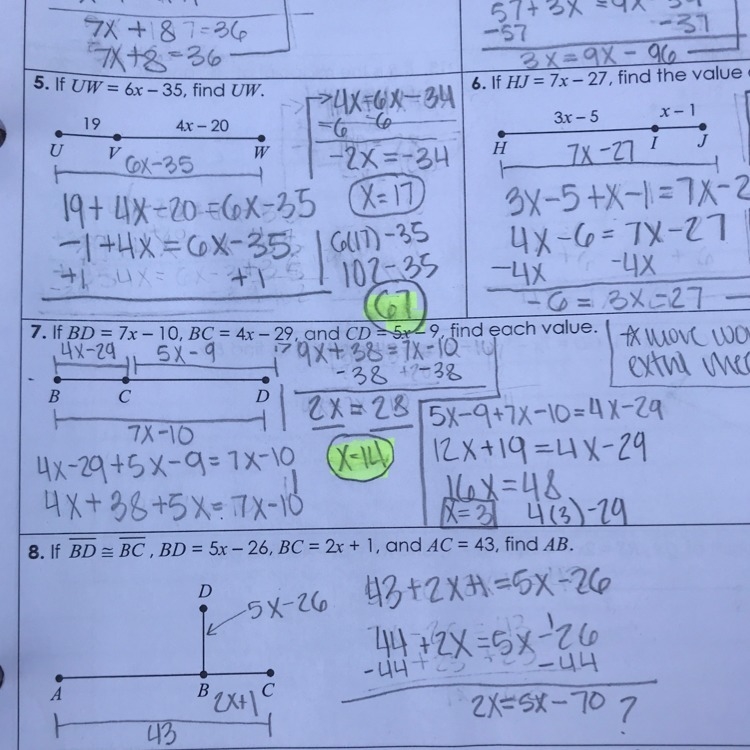 7x + 8 = 36
7x+8=36
57+3x = 9x - 39
-57 -37
3x = 9x - 96
5. If UW = 6x – 35, find UW.
19 4x – 20
U V W
6x-35
19 + 4x - 20 = 6x - 35
-1 + 4x = 6x - 35
+1 +1
4x = 6x - 34
-6 -6
-2x = -34
x = 17
6(17) - 35
102 - 35
67
6. If HJ = 7x – 27, find the value
3x – 5 x – 1
H I J
7x-27
3x - 5 + x - 1 = 7x - 2
4x - 6 = 7x - 27
-4x -4x
-6 = 3x = 27
7. If BD = 7x – 10, BC = 4x – 29, and CD = 5x – 9, find each value.
4x-29 5x-9
B C D
7x-10
4x-29+5x-9=7x-10
4x+38+5x=7x-10
9x+38=7x-10
-38 -38
2x = 28
x=14
5x-9+7x-10=4x-29
12x+19=4x-29
16x=48
x=3 4(3)-29
8. If BD ≅ BC, BD = 5x – 26, BC = 2x + 1, and AC = 43, find AB.
D
5x-26
A B C
2x+1
43
43+2x+1=5x-26
44+2x=5x-26
-44 -44
2x=5x-70 ?